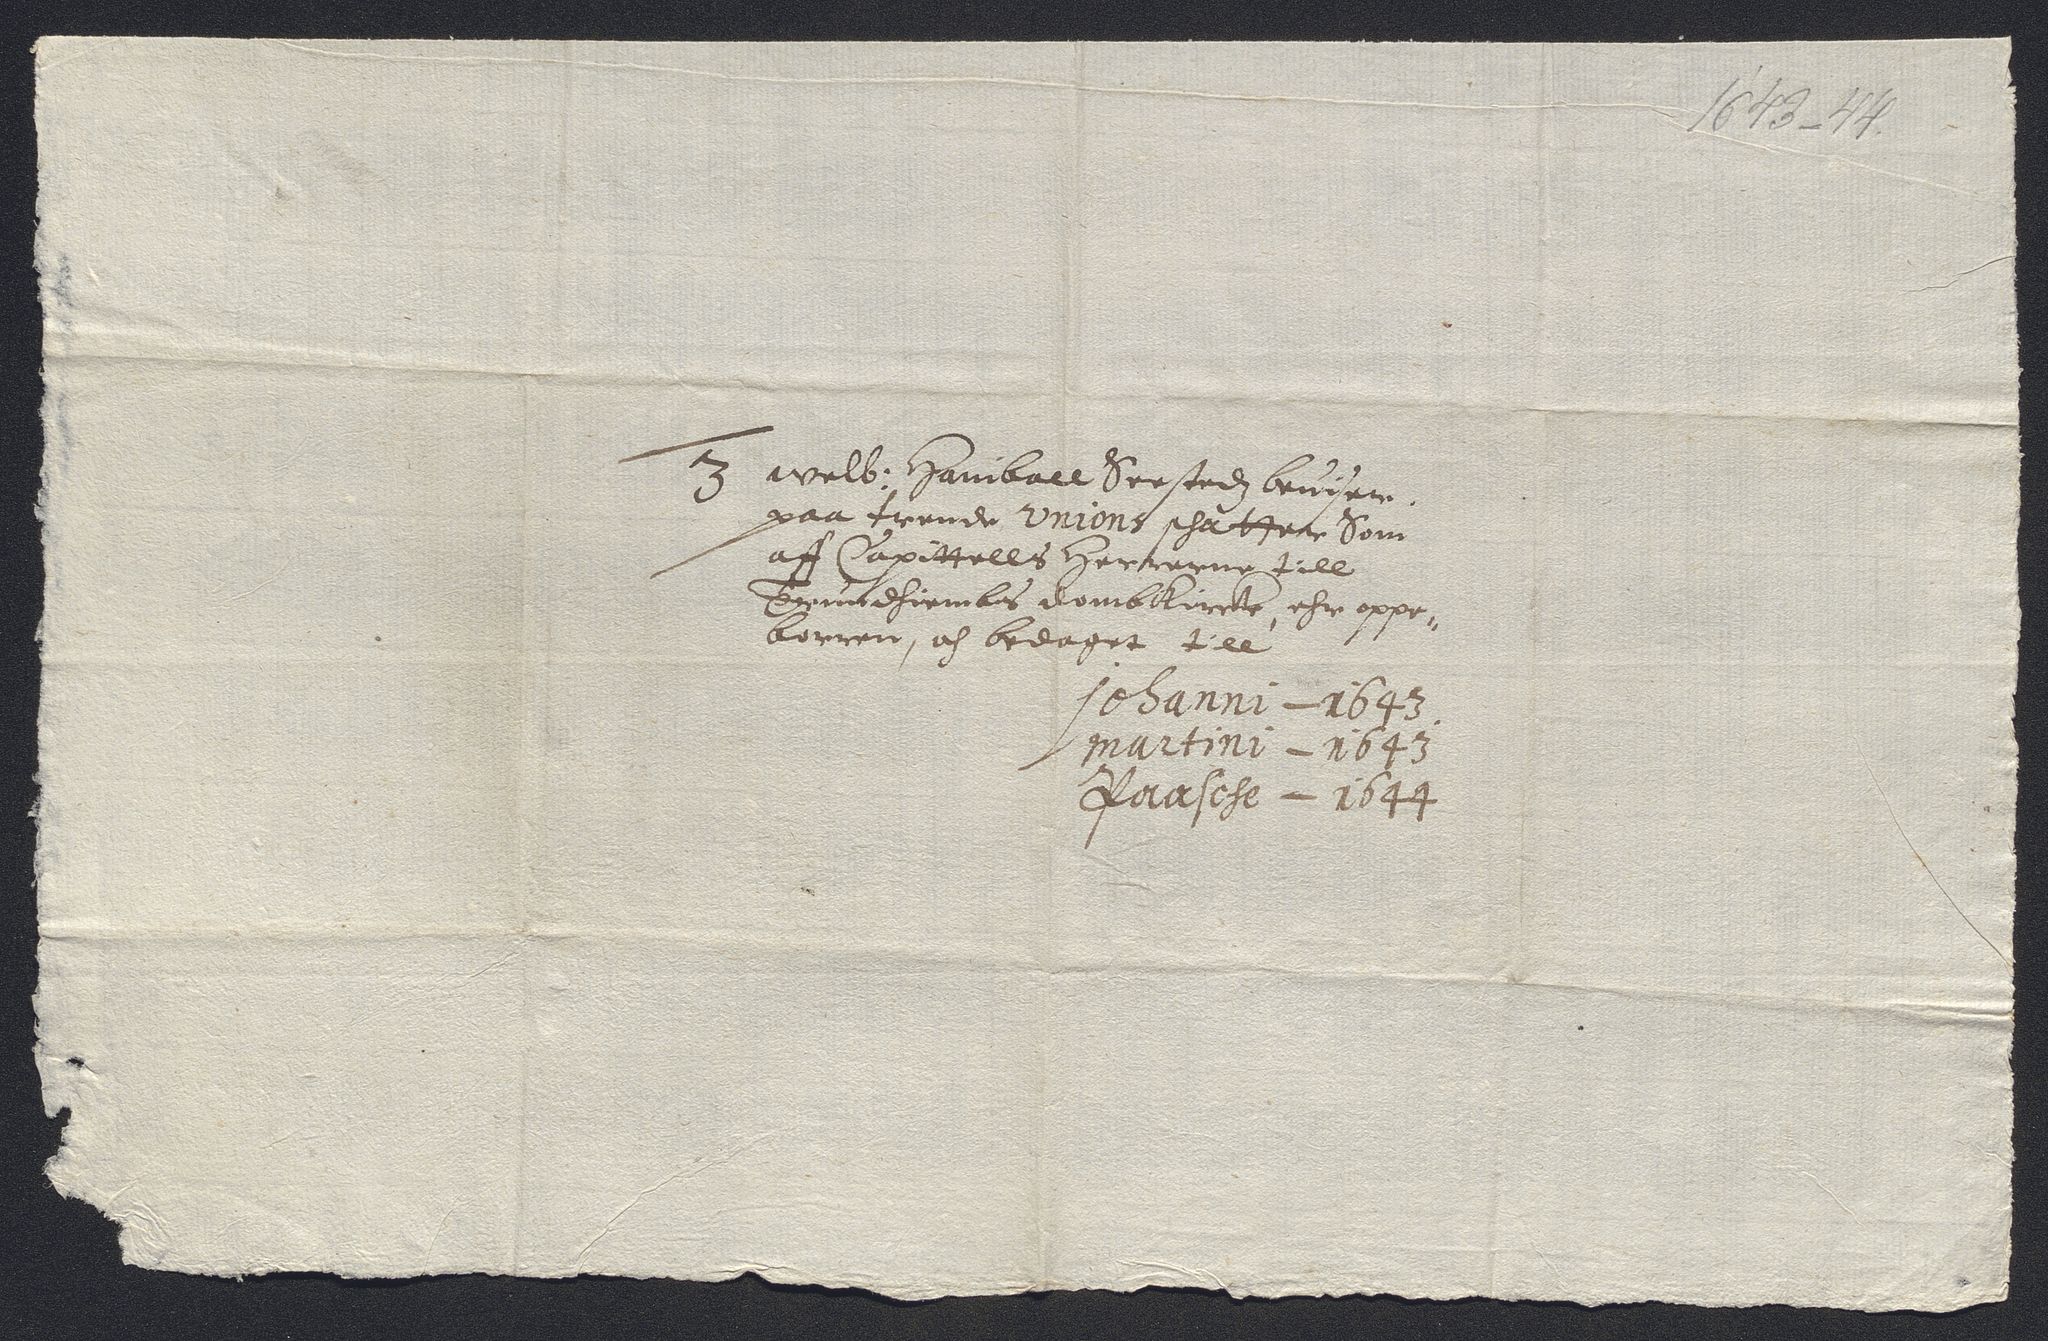 1643-44.
3 welb: Haniball Seestedz beuiser
paa trende Vnions schatter Som
aff Capittells Herrerne till
Trundhiembs dombkircke, ehr oppe„
borren, oc bedaget till
johanni – 1643.
martini – 1643
Paasche – 1644